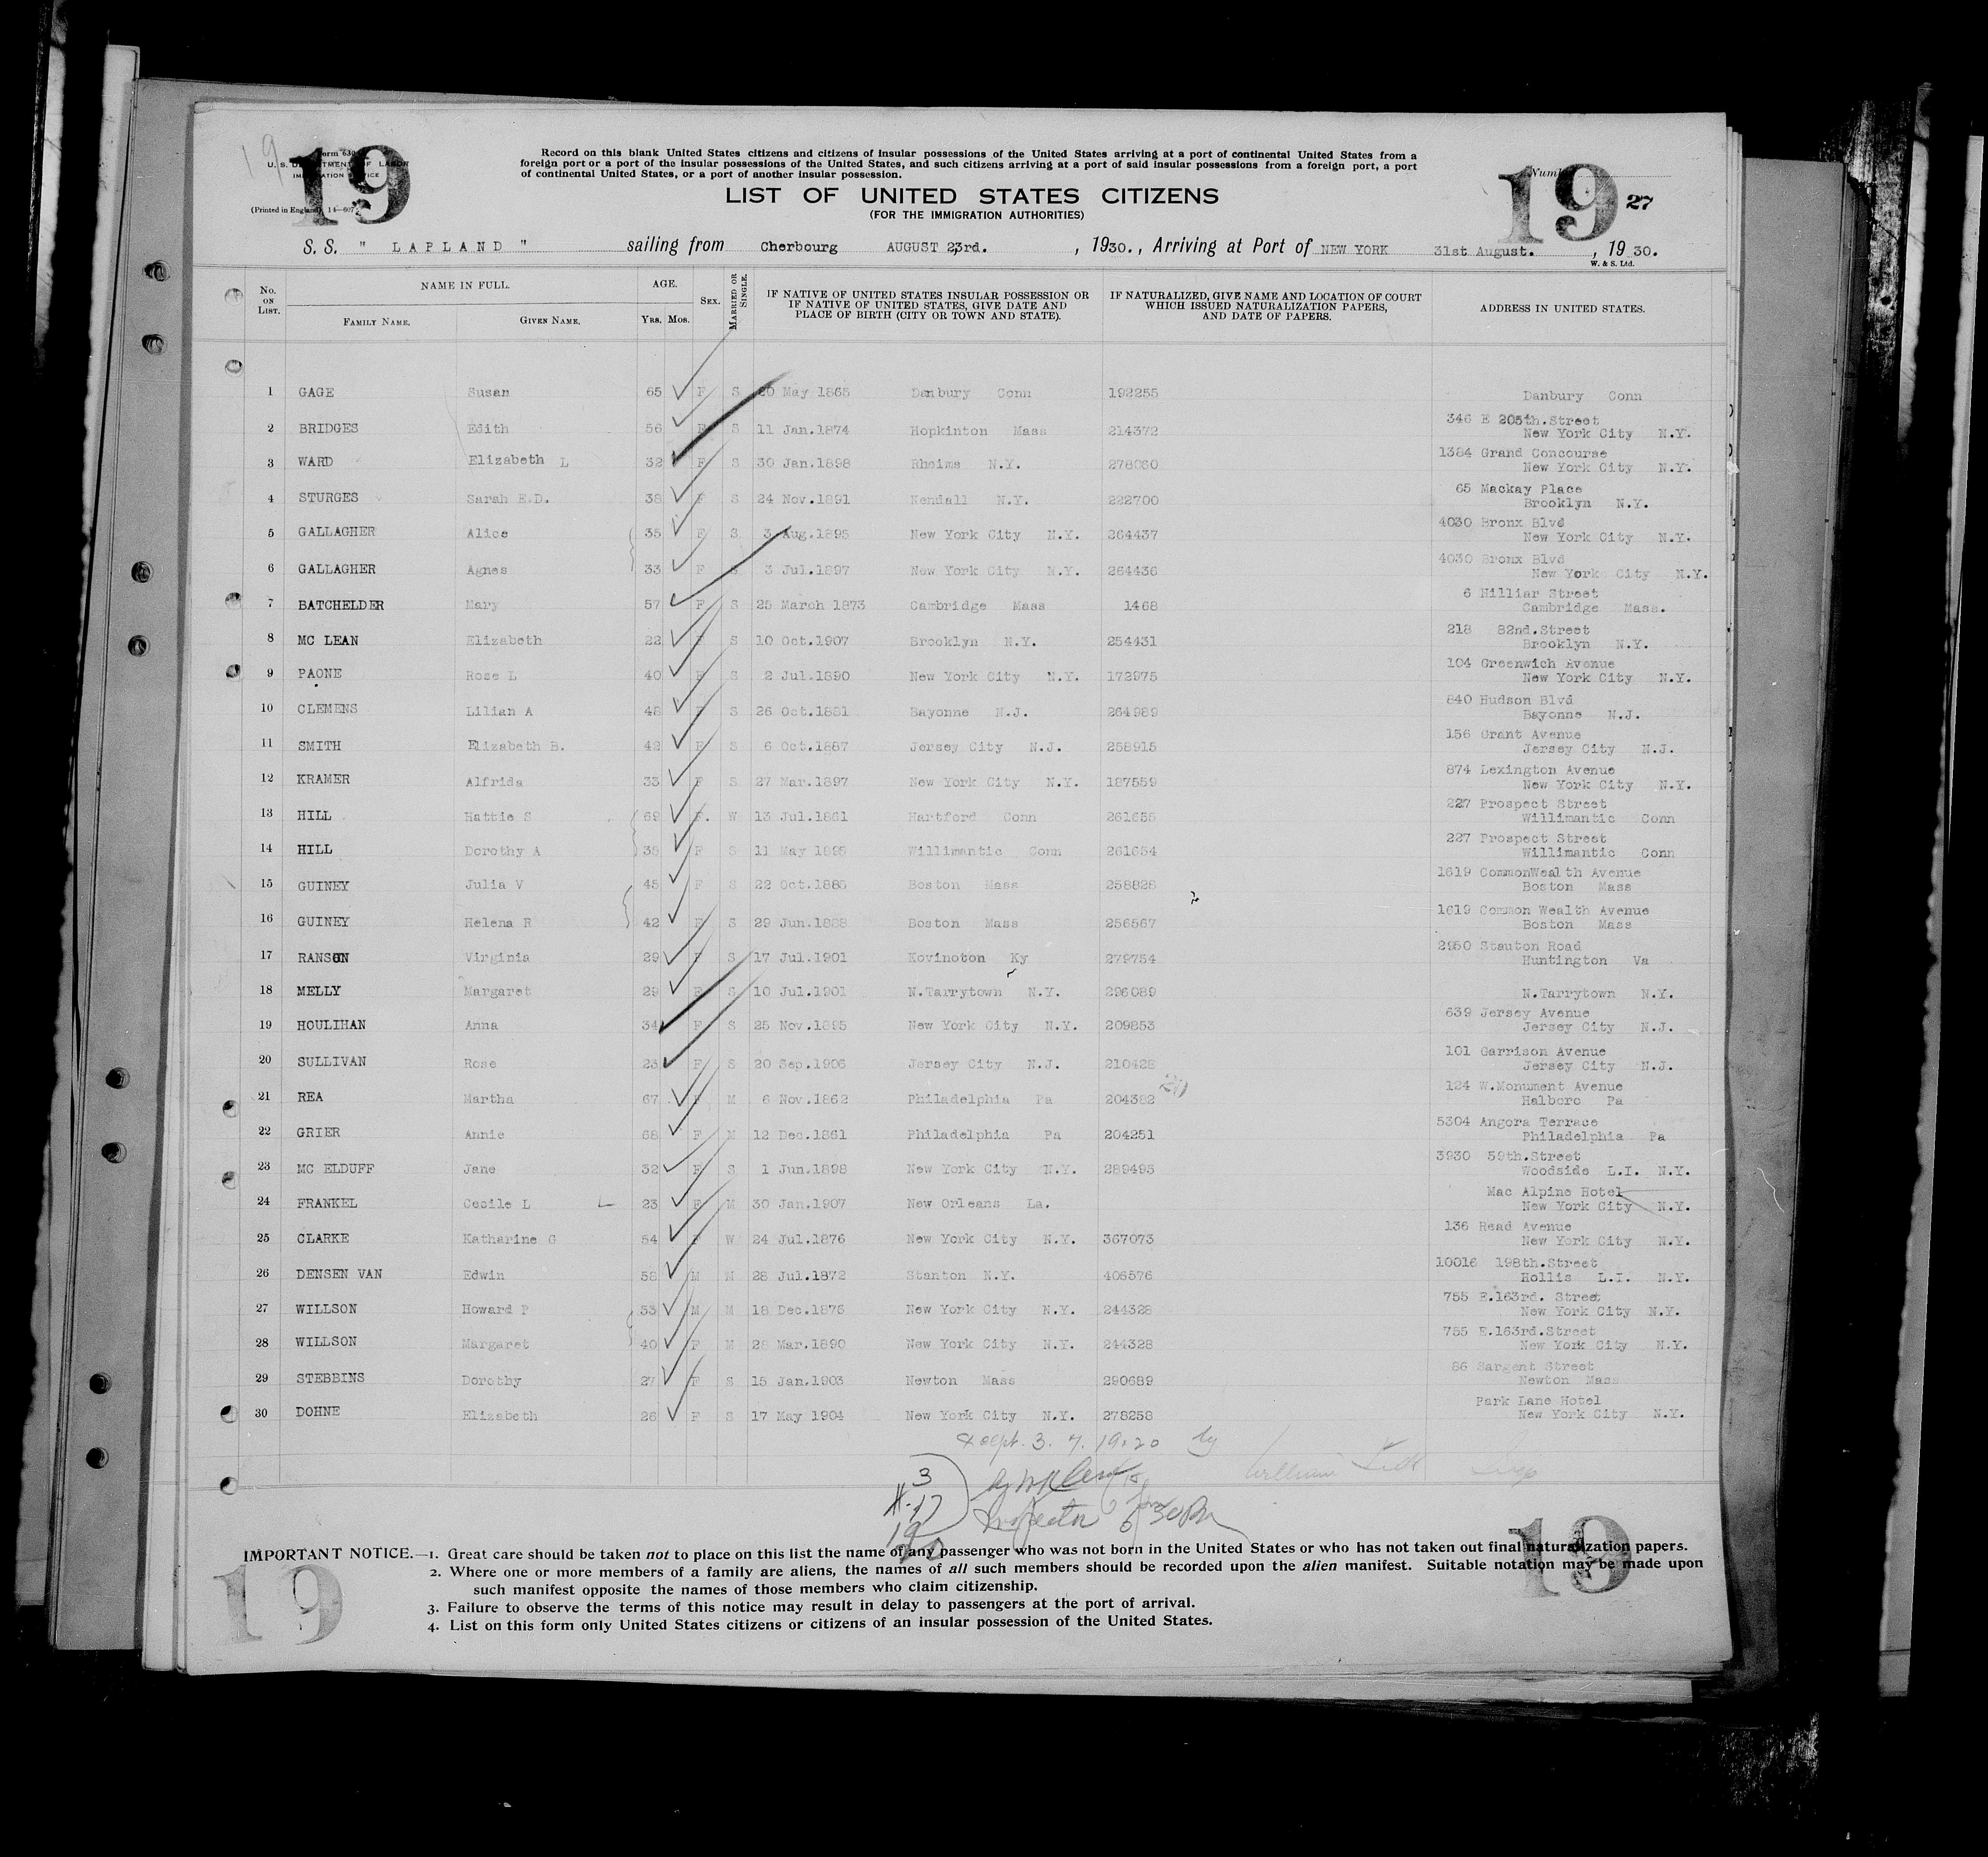 19
19
Form 630
U. S. DEPARTMENT OF LABOR
IMMIGRATION SERVICE
(Printed in England) 14—607
Record on this blank United States citizens and citizens of insular possessions of the United States arriving at a port of continental United States from a
foreign port or a port of the insular possessions of the United States, and such citizens arriving at a port of said insular possessions from a foreign port, a port
of continental United States, or a port of another insular possession.
LIST OF UNITED STATES CITIZENS
(FOR THE IMMIGRATION AUTHORITIES)
19
27
S. S. " LAPLAND " sailing from Cherbourg AUGUST 23rd. , 1930. , Arriving at Port of NEW YORK 31st August. , 1930.
W. & S. Ltd.
No. ON LIST. NAME IN FULL. AGE. SEX. MARRIED OR SINGLE. IF NATIVE OF UNITED STATES INSULAR POSSESSION OR IF NATIVE OF UNITED STATES, GIVE DATE AND PLACE OF BIRTH (CITY OR TOWN AND STATE). IF NATURALIZED, GIVE NAME AND LOCATION OF COURT WHICH ISSUED NATURALIZATION PAPERS, AND DATE OF PAPERS. ADDRESS IN UNITED STATES.
FAMILY NAME. GIVEN NAME. YRS. MOS.
1 GAGE Susan 65 F S 20 May 1865 Danbury Conn 192255 Danbury Conn
2 BRIDGES Edith 56 F S 11 Jan.1874 Hopkinton Mass 214372 346 E 205th.Street
New York City N.Y.
3 WARD Elizabeth L 32 F S 30 Jan.1898 Rheims N.Y. 278060 1384 Grand Concourse
New York City N.Y.
4 STURGES Sarah E.D. 38 F S 24 Nov.1891 Kendall N.Y. 222700 65 Mackay Place
Brooklyn N.Y.
5 GALLAGHER Alice 35 F S 3 Aug.1895 New York City N.Y. 264437 4030 Bronx Blvd
New York City N.Y.
6 GALLAGHER Agnes 33 F S 3 Jul.1897 New York City N.Y. 264436 4030 Bronx Blvd
New York City N.Y.
7 BATCHELDER Mary 57 F S 25 March 1873 Cambridge Mass 1468 6 Hilliar Street
Cambridge Mass.
8 MC LEAN Elizabeth 22 F S 10 Oct.1907 Brooklyn N.Y. 254431 218 82nd.Street
Brooklyn N.Y.
9 PAONE Rose L 40 F S 2 Jul.1890 New York City N.Y. 172975 104 Greenwich Avenue
New York City N.Y.
10 CLEMENS Lilian A 48 F S 26 Oct.1881 Bayonne N.J. 264989 840 Hudson Blvd
Bayonne N.J.
11 SMITH Elizabeth B. 42 F S 6 Oct.1887 Jersey City N.J. 258915 156 Grant Avenue
Jersey City N.J.
12 KRAMER Alfrida 33 F S 27 Mar.1897 New York City N.Y. 187559 874 Lexington Avenue
New York City N.Y.
13 HILL Hattie S 69 F. W 13 Jul.1861 Hartford Conn 261655 227 Prospect Street
Willimantic Conn
14 HILL Dorothy A 35 F S 11 May 1895 Willimantic Conn 261654 227 Prospect Street
Willimantic Conn
15 GUINEY Julia V 45 F S 22 Oct.1885 Boston Mass 258828 1619 CommonWealth Avenue
Boston Mass
16 GUINEY Helena R 42 F S 29 Jun.1888 Boston Mass 256567 1619 Common Wealth Avenue
Boston Mass
17 RANSON Virginia 29 F S 17 Jul.1901 Kovinoton Ky 279754 2950 Stauton Road
Huntington Va
18 MELLY Margaret 29 F S 10 Jul.1901 N.Tarrytown N.Y. 296089 N.Tarrytown N.Y.
19 HOULIHAN Anna 34 F S 25 Nov.1895 New York City N.Y. 209853 639 Jersey Avenue
Jersey City N.J.
20 SULLIVAN Rose 23 F S 20 Sep.1906 Jersey City N.J. 210428 101 Garrison Avenue
Jersey City N.J.
21 REA Martha 67 F M 6 Nov.1862 Philadelphia Pa 204382 124 W.Monument Avenue
Halboro Pa
22 GRIER Annie 68 F M 12 Dec.1861 Philadelphia Pa 204251 5304 Angora Terrace
Philadelphia Pa
23 MC ELDUFF Jane 32 F S 1 Jun.1898 New York City N.Y. 289495 3930 59th.Street
Woodside L.I. N.Y.
24 FRANKEL Cecile L 23 F M 30 Jan.1907 New Orleans La. Mac Alpine Hotel
New York City N.Y.
25 CLARKE Katharine G 54 F W 24 Jul.1876 New York City N.Y. 367073 136 Read Avenue
New York City N.Y.
26 DENSEN VAN Edwin 58 M M 28 Jul.1872 Stanton N.Y. 406576 10016 198th.Street
Hollis L.I. N.Y.
27 WILLSON Howard P 53 M M 18 Dec.1876 New York City N.Y. 244328 755 E.163rd. Street
New York City N.Y.
28 WILLSON Margaret 40 F M 28 Mar.1890 New York City N.Y. 244328 755 E.163rd.Street
New York City N.Y.
29 STEBBINS Dorothy 27 F S 15 Jan.1903 Newton Mass 290689 86 Sargent Street
Newton Mass
30 DOHNE Elizabeth 26 F S 17 May 1904 New York City N.Y. 278258 Park Lane Hotel
New York City N.Y.
except. 3. 7. 19. 20 by William
3
#17
19
20
Inspector
IMPORTANT NOTICE.—1. Great care should be taken not to place on this list the name of any passenger who was not born in the United States or who has not taken out final naturalization papers.
2. Where one or more members of a family are aliens, the names of all such members should be recorded upon the alien manifest. Suitable notation may be made upon
such manifest opposite the names of those members who claim citizenship.
3. Failure to observe the terms of this notice may result in delay to passengers at the port of arrival.
4. List on this form only United States citizens or citizens of an insular possession of the United States.
19
19